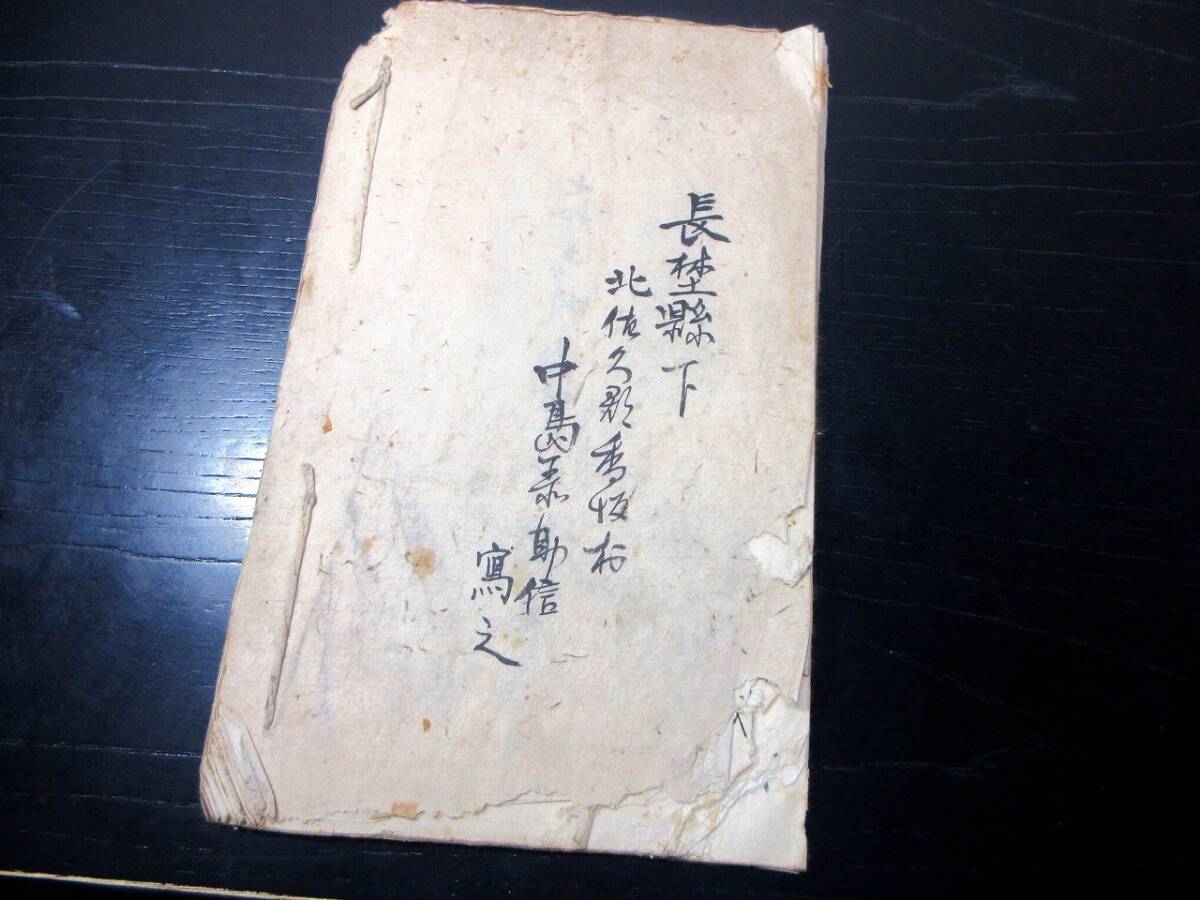 長埜縣下
北佐久郡香坂村
中島泰助信
寫之